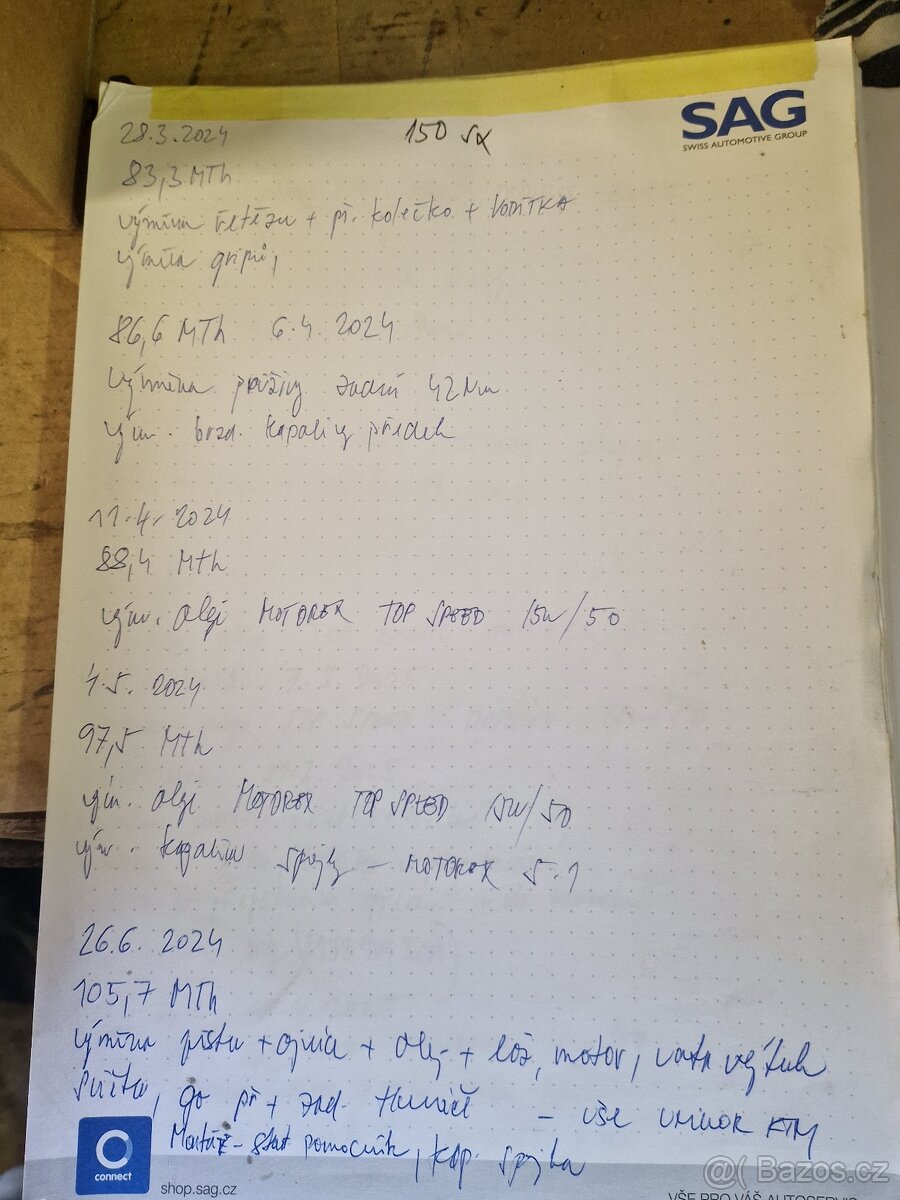 28.3.2024 150 SX
SAG
SWISS AUTOMOTIVE GROUP
83,3 MTh
výměna řetězu + př. kolečko + VODÍTKA
výměna gripů,
86,6 MTh 6.4.2024
Výměna pružiny zadní 42Nm
vým. brzd. kapaliny předek
11.4.2024
88,4 Mth
vým. oleje MOTOREX TOP SPEED 15w/50
4.5. 2024
97,5 Mth
vým. oleje MOTOREX TOP SPEED 15W/50
vým. kapaliny spojky - MOTOREX 5.1
26.6. 2024
105,7 MTh
výměna pístu + ojnice + olej + lož, motor, vata výfuk
svíčka, go př + zad. tlumič - vše UNIKOR KTM
Montáž - start pomocník, kap. spojka
connect
shop.sag.cz
VŠE PRO VÁŠ AUTOSERVIS
@( Bazos.cz